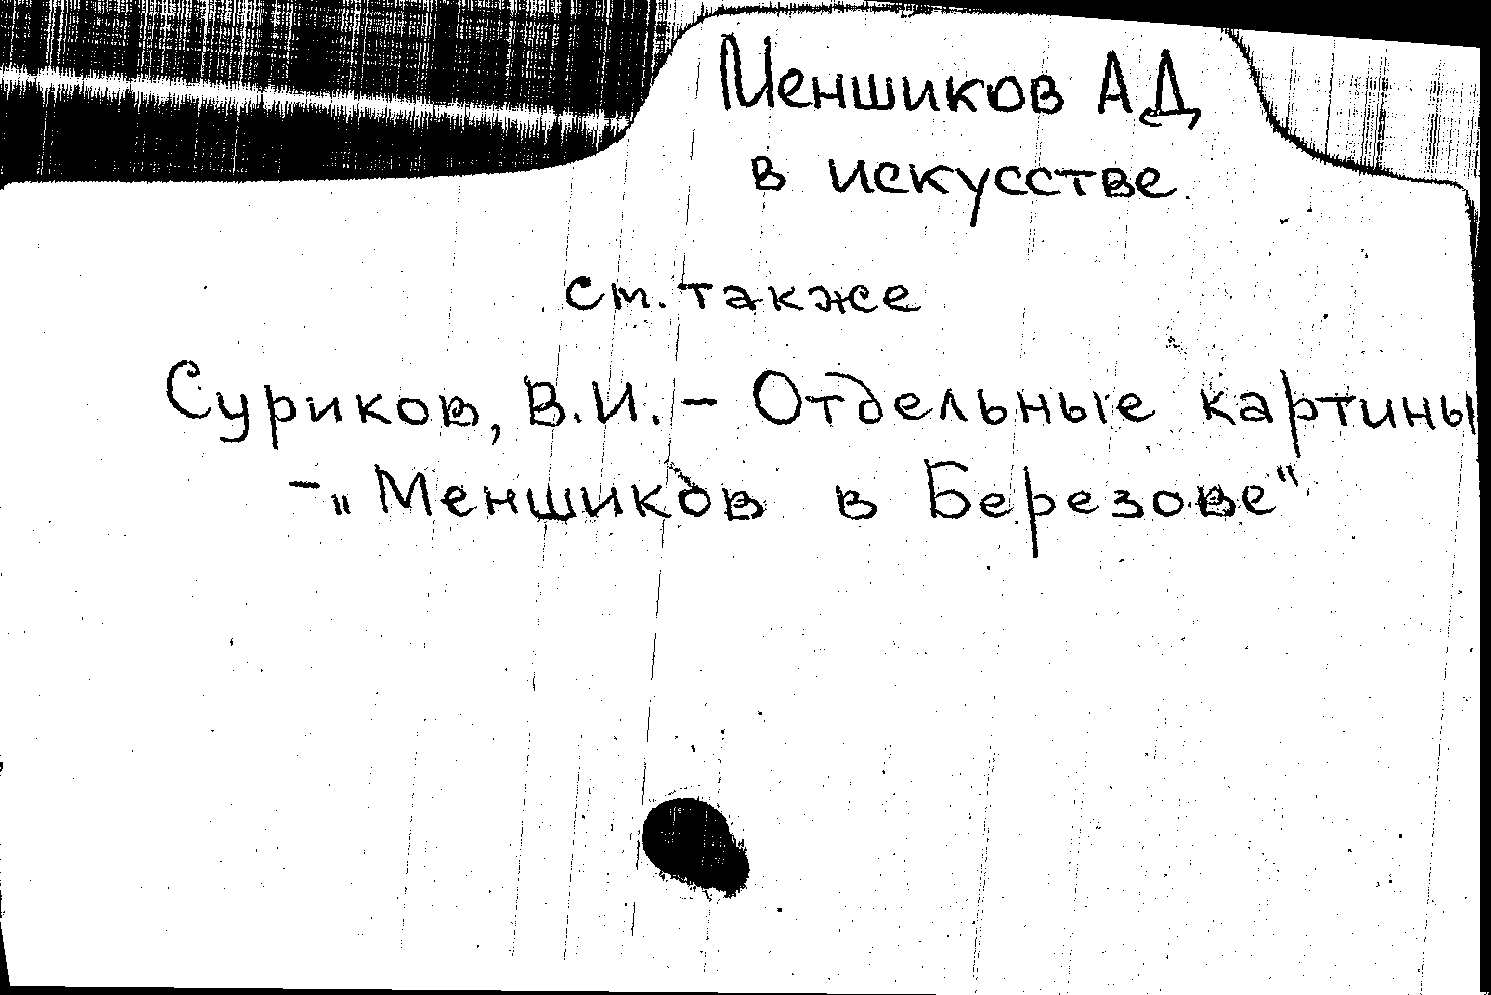 Меншиков А Д
в искусстве
См. также
Суриков, В.И. – Отдельные картины
– „Меншиков в Березове“